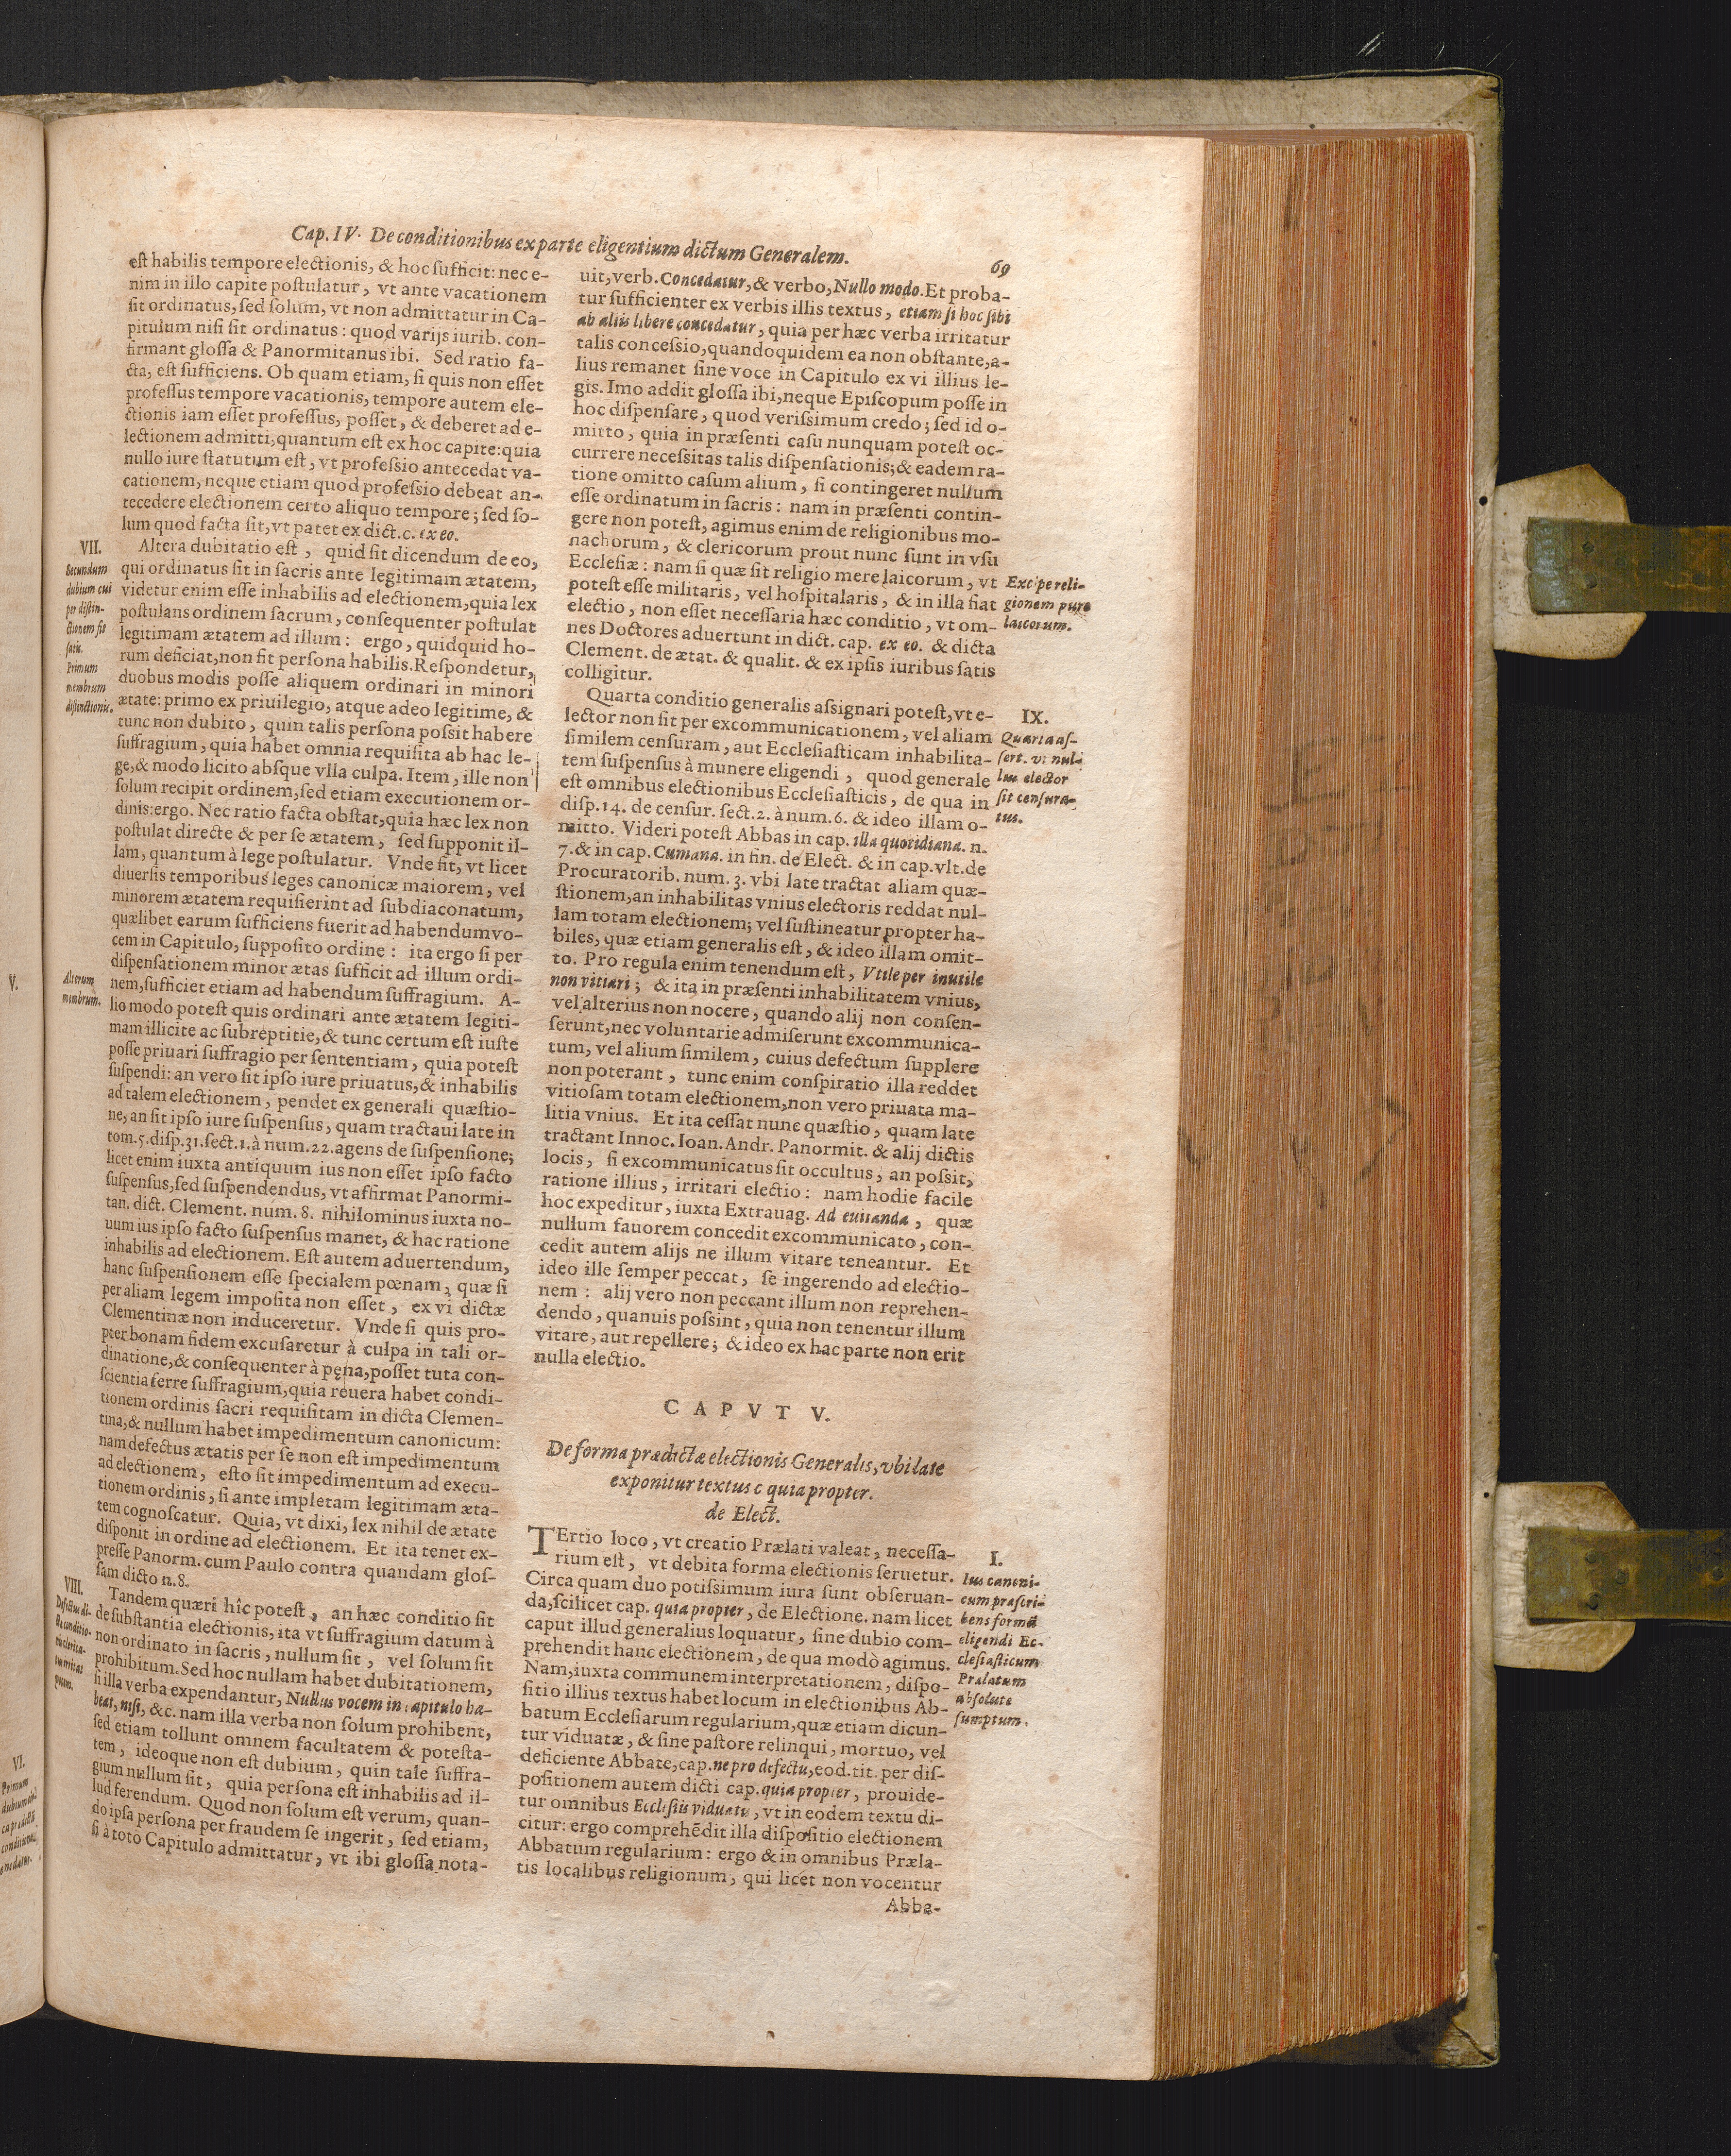 Cap. IV. De conditionibus ex parte eligentium dictum Generalem.
69
est habilis tempore electionis, & hoc sufficit: nec e-
nim in illo capite postulatur, vt ante vacationem
sit ordinatus, sed solum, vt non admittatur in Ca-
pitulum nisi sit ordinatus: quod varijs iurib. con-
firmant glossa & Panormitanus ibi. Sed ratio fa-
cta, est sufficiens. Ob quam etiam, si quis non esset
professus tempore vacationis, tempore autem ele-
ctionis iam esset professus, posset, & deberet ad e-
lectionem admitti, quantum est ex hoc capite: quia
nullo iure statutum est, vt professio antecedat va-
cationem, neque etiam quod professio debeat an-
tecedere electionem certo aliquo tempore; sed so-
lum quod facta sit, vt patet ex dict. c. ex eo.
VII.
Secundum
dubium cui
per distin-
ctionem fit
satis.
Primum
membrum
distinctionis.
Altera dubitatio est, quid sit dicendum de eo,
qui ordinatus sit in sacris ante legitimam ætatem,
videtur enim esse inhabilis ad electionem, quia lex
postulans ordinem sacrum, consequenter postulat
legitimam ætatem ad illum: ergo, quidquid ho-
rum deficiat, non fit persona habilis. Respondetur,
duobus modis posse aliquem ordinari in minori
ætate: primo ex priuilegio, atque adeo legitime, &
tunc non dubito, quin talis persona possit habere
suffragium, quia habet omnia requisita ab hac le-
ge, & modo licito absque vlla culpa. Item, ille non
solum recipit ordinem, sed etiam executionem or-
dinis: ergo. Nec ratio facta obstat, quia hæc lex non
postulat directe & per se ætatem, sed supponit il-
lam, quantum à lege postulatur. Vnde fit, vt licet
diuersis temporibus leges canonicæ maiorem, vel
minorem ætatem requisierint ad subdiaconatum,
quælibet earum sufficiens fuerit ad habendum vo-
cem in Capitulo, supposito ordine: ita ergo si per
dispensationem minor ætas sufficit ad illum ordi-
nem, sufficiet etiam ad habendum suffragium. A-
Alterum
membrum.
lio modo potest quis ordinari ante ætatem legiti-
mam illicite ac subreptitie, & tunc certum est iuste
posse priuari suffragio per sententiam, quia potest
suspendi: an vero sit ipso iure priuatus, & inhabilis
ad talem electionem, pendet ex generali quæstio-
ne, an sit ipso iure suspensus, quam tractaui late in
tom. 5. disp. 31. sect. 1. à num. 22. agens de suspensione;
licet enim iuxta antiquum ius non esset ipso facto
suspensus, sed suspendendus, vt affirmat Panormi-
tan. dict. Clement. num. 8. nihilominus iuxta no-
uum ius ipso facto suspensus manet, & hac ratione
inhabilis ad electionem. Est autem aduertendum,
hanc suspensionem esse specialem pœnam, quæ si
per aliam legem imposita non esset, ex vi dictæ
Clementinæ non induceretur. Vnde si quis pro-
pter bonam fidem excusaretur à culpa in tali or-
dinatione, & consequenter à pęna, posset tuta con-
scientia ferre suffragium, quia reuera habet condi-
tionem ordinis sacri requisitam in dicta Clemen-
tina, & nullum habet impedimentum canonicum:
nam defectus ætatis per se non est impedimentum
ad electionem, esto sit impedimentum ad execu-
tionem ordinis, si ante impletam legitimam æta-
tem cognoscatur. Quia, vt dixi, lex nihil de ætate
disponit in ordine ad electionem. Et ita tenet ex-
presse Panorm. cum Paulo contra quandam glos-
sam dicto n. 8.
VIII.
Tandem quæri hîc potest, an hæc conditio sit
de substantia electionis, ita vt suffragium datum à
non ordinato in sacris, nullum sit, vel solum sit
prohibitum. Sed hoc nullam habet dubitationem,
si illa verba expendantur, Nullus vocem in capitulo ha-
beat, nisi, &c. nam illa verba non solum prohibent,
sed etiam tollunt omnem facultatem & potesta-
tem, ideoque non est dubium, quin tale suffra-
gium nullum sit, quia persona est inhabilis ad il-
lud ferendum. Quod non solum est verum, quan-
do ipsa persona per fraudem se ingerit, sed etiam,
si à toto Capitulo admittatur, vt ibi glossa nota-
uit, verb. Concedatur, & verbo, Nullo modo. Et proba-
tur sufficienter ex verbis illis textus, etiam si hoc sibi
ab aliis libere concedatur, quia per hæc verba irritatur
talis concessio, quandoquidem ea non obstante, a-
lius remanet sine voce in Capitulo ex vi illius le-
gis. Imo addit glossa ibi, neque Episcopum posse in
hoc dispensare, quod verissimum credo; sed id o-
mitto, quia in præsenti casu nunquam potest oc-
currere necessitas talis dispensationis; & eadem ra-
tione omitto casum alium, si contingeret nullum
esse ordinatum in sacris: nam in præsenti contin-
gere non potest, agimus enim de religionibus mo-
nachorum, & clericorum prout nunc sunt in vsu
Ecclesiæ: nam si quæ sit religio mere laicorum, vt
potest esse militaris, vel hospitalaris, & in illa fiat
electio, non esset necessaria hæc conditio, vt om-
nes Doctores aduertunt in dict. cap. ex eo. & dicta
Clement. de ætat. & qualit. & ex ipsis iuribus satis
colligitur.
Excipe reli-
gionem pure
laicorum.
Quarta conditio generalis assignari potest, vt e-
lector non sit per excommunicationem, vel aliam
similem censuram, aut Ecclesiasticam inhabilita-
tem suspensus à munere eligendi, quod generale
est omnibus electionibus Ecclesiasticis, de qua in
disp. 14. de censur. sect. 2. à num. 6. & ideo illam o-
mitto. Videri potest Abbas in cap. illa quotidiana. n.
7. & in cap. Cumana. in fin. de Elect. & in cap. vlt. de
Procuratorib. num. 3. vbi late tractat aliam quæ-
stionem, an inhabilitas vnius electoris reddat nul-
lam totam electionem; vel sustineatur propter ha-
biles, quæ etiam generalis est, & ideo illam omit-
to. Pro regula enim tenendum est, Vtile per inutile
non vitiari; & ita in præsenti inhabilitatem vnius,
vel alterius non nocere, quando alij non consen-
serunt, nec voluntarie admiserunt excommunica-
tum, vel alium similem, cuius defectum supplere
non poterant, tunc enim conspiratio illa reddet
vitiosam totam electionem, non vero priuata ma-
litia vnius. Et ita cessat nunc quæstio, quam late
tractant Innoc. Ioan. Andr. Panormit. & alij dictis
locis, si excommunicatus sit occultus, an possit,
ratione illius, irritari electio: nam hodie facile
hoc expeditur, iuxta Extrauag. Ad euitanda, quæ
nullum fauorem concedit excommunicato, con-
cedit autem alijs ne illum vitare teneantur. Et
ideo ille semper peccat, se ingerendo ad electio-
nem: alij vero non peccant illum non reprehen-
dendo, quanuis possint, quia non tenentur illum
vitare, aut repellere; & ideo ex hac parte non erit
nulla electio.
IX.
Quarta as-
sert. vt nul-
lus elector
sit censura-
tus.
CAPVT V.
De forma prædictæ electionis Generalis, vbi late
exponitur textus c quia propter.
de Elect.
TErtio loco, vt creatio Prælati valeat, necessa-
rium est, vt debita forma electionis seruetur.
Circa quam duo potissimum iura sunt obseruan-
da, scilicet cap. quia propter, de Electione. nam licet
caput illud generalius loquatur, sine dubio com-
prehendit hanc electionem, de qua modò agimus.
Nam, iuxta communem interpretationem, dispo-
sitio illius textus habet locum in electionibus Ab-
batum Ecclesiarum regularium, quæ etiam dicun-
tur viduatæ, & sine pastore relinqui, mortuo, vel
deficiente Abbate, cap. ne pro defectu, eod. tit. per dis-
positionem autem dicti cap. quia propter, prouide-
tur omnibus Ecclesiis viduatis, vt in eodem textu di-
citur: ergo comprehēdit illa dispositio electionem
Abbatum regularium: ergo & in omnibus Præla-
tis localibus religionum, qui licet non vocentur
Abba-
I.
Ius canoni-
cum præscri-
bens formā
eligendi Ec-
clesiasticum
Prælatum
absolute
sumptum.
V.
VI.
Primum